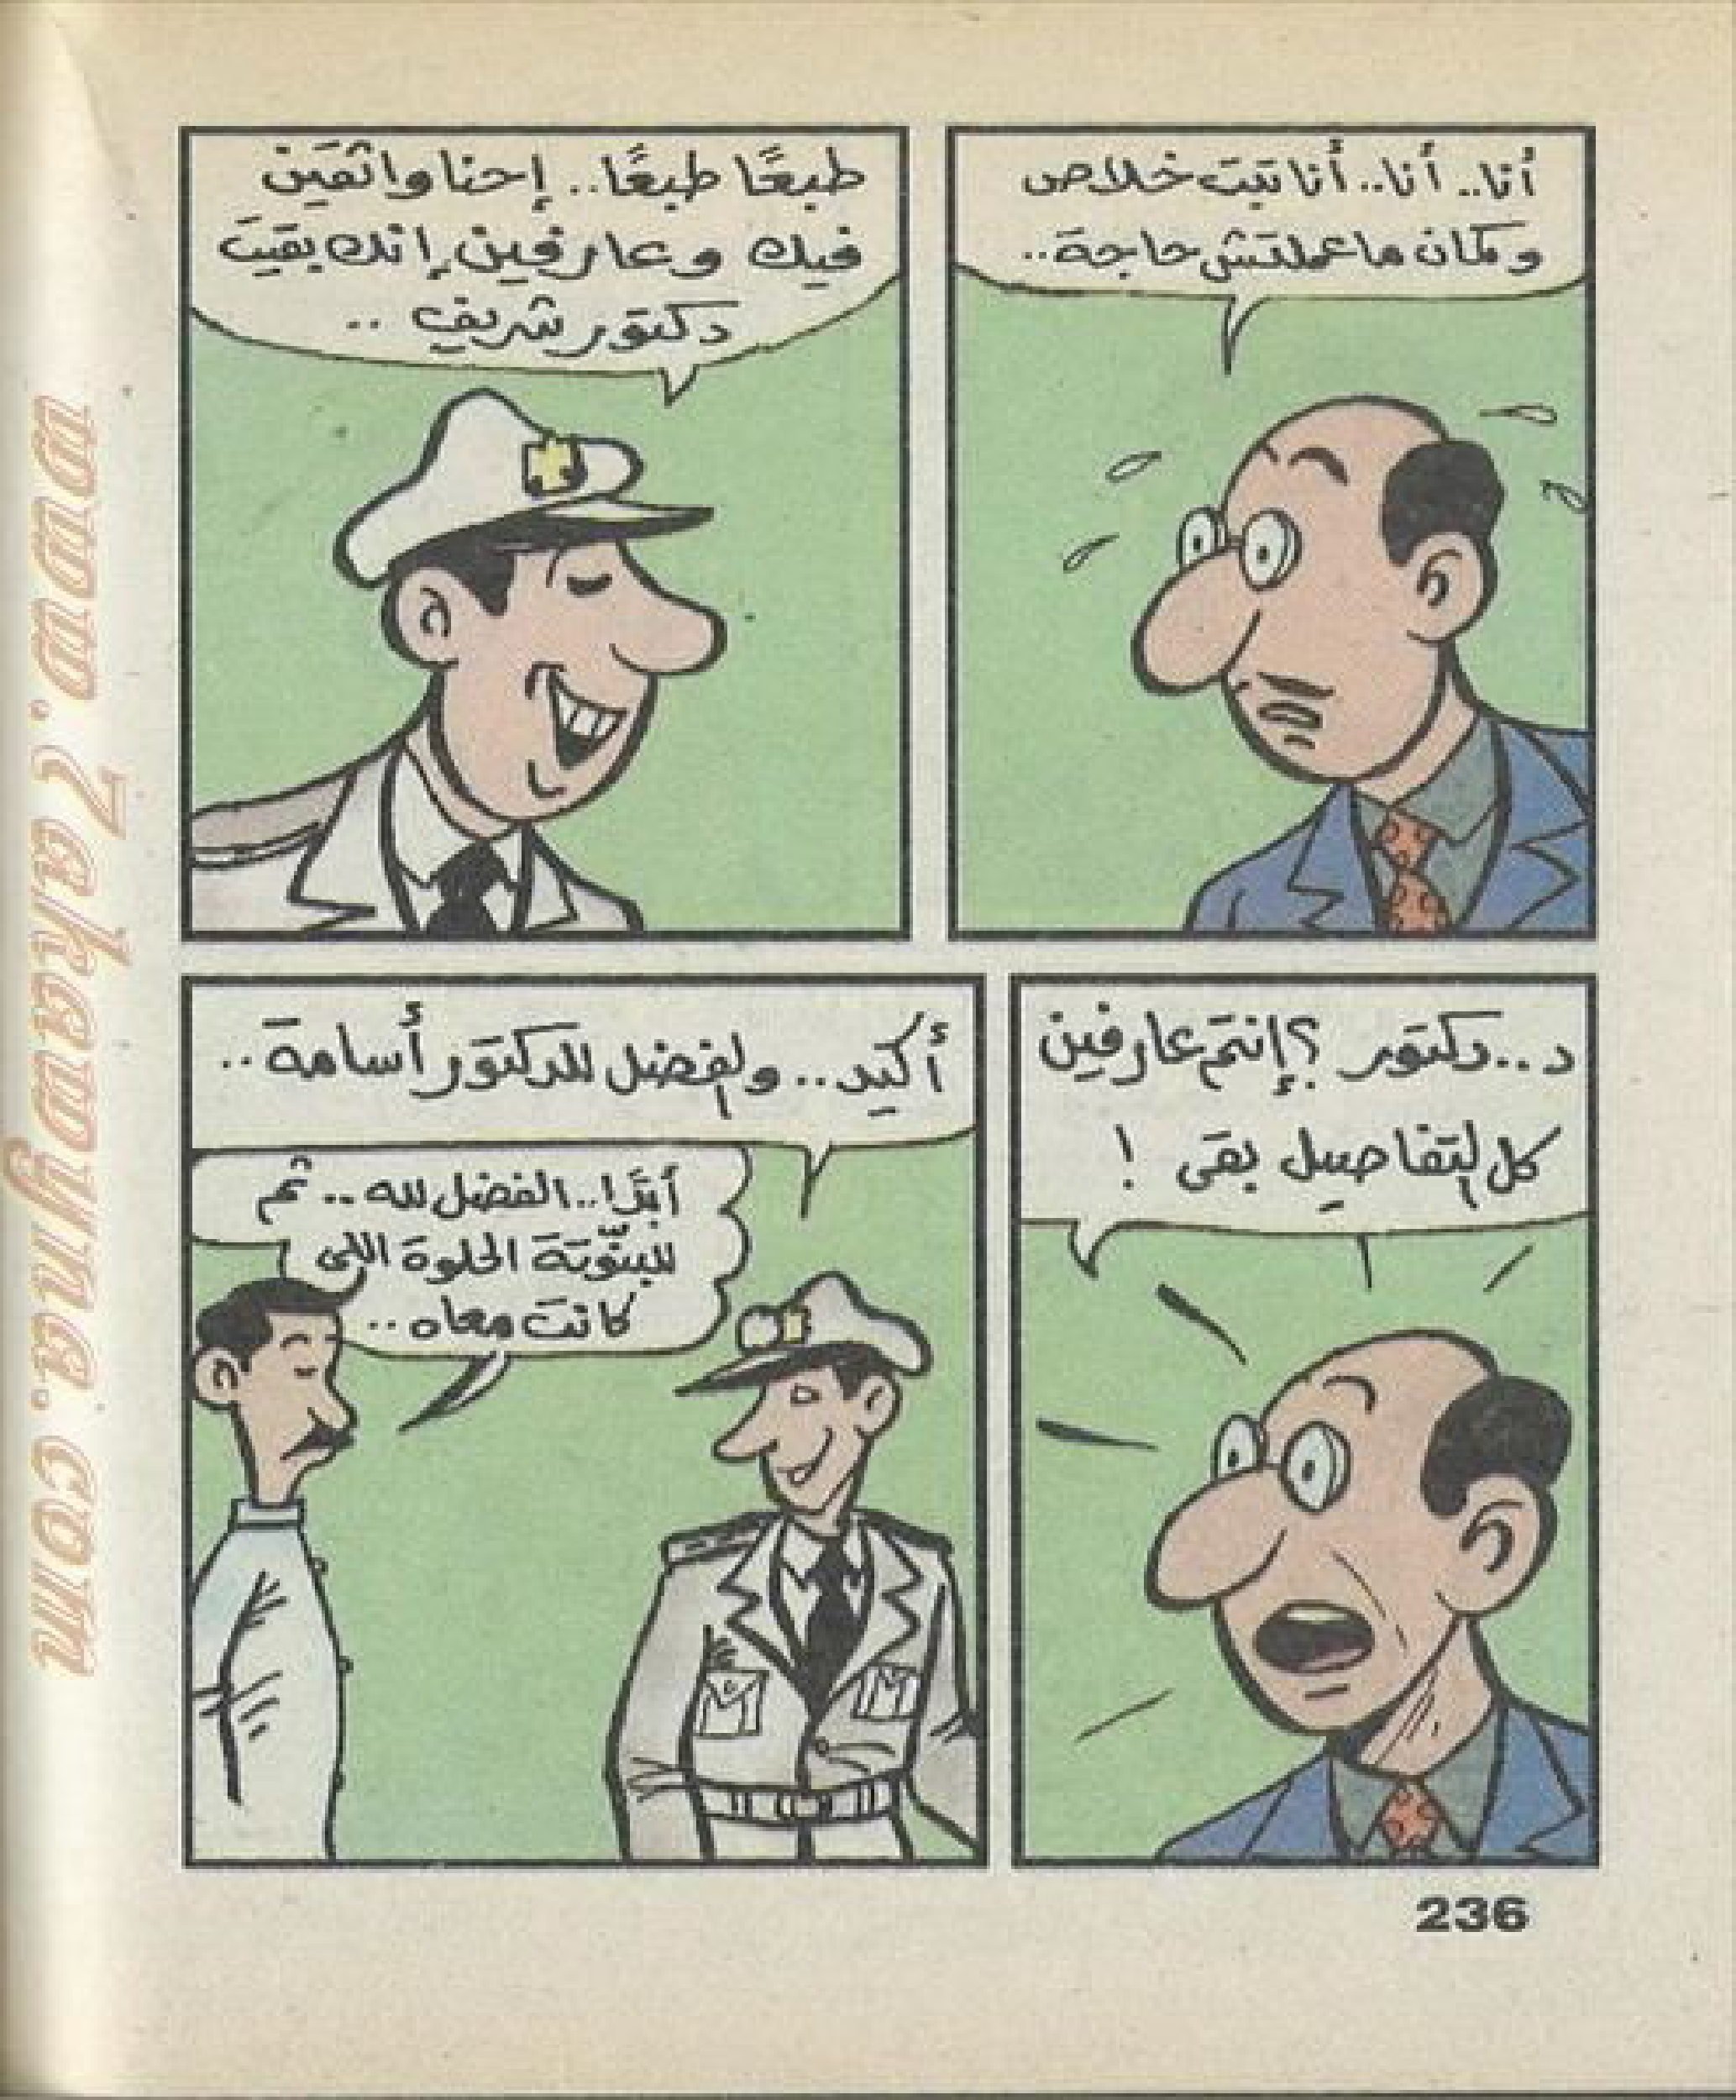 أنا.. أنا.. أنا تبت خلاص
وكمان ماعملتش حاجة..
طبعًا طبعًا.. إحنا واثقين
فيك وعارفين إنك بقيت
دكتور شريف..
د..دكتور؟ إنتم عارفين
كل التفاصيل بقى!
أكيد.. والفضل للدكتور أسامة..
أبدًا.. الفضل لله.. ثم
للبنّوتة الحلوة اللي
كانت معاه..
236
www.7akawyuna.com